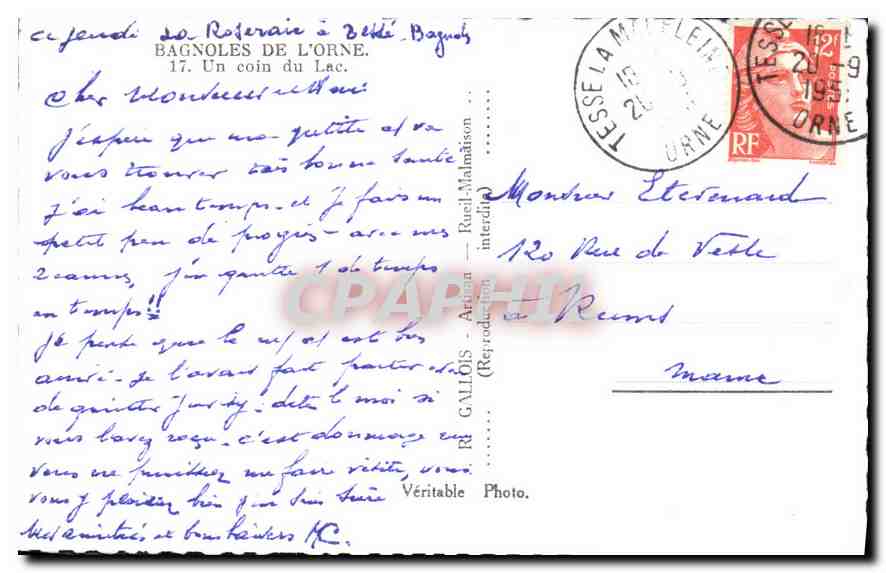 ce jeudi La Roseraie à Tessé-Bagnoles
BAGNOLES DE L'ORNE.
17. Un coin du Lac.
Cher Monsieur et Ami
J'espère que ma petite va
vous trouver très bonne santé
J'ai beau temps et je fais un
petit peu de progrès - avec mes
2 cannes, j'en quitte 1 de temps
en temps!!
Je pense que le est bien
arrivé - Je l'avais fait partir
de quitter : dites le moi si
vous l'avez reçu. c'est dommage que
vous ne puissiez me faire visite, vous
vous y plairiez bien j'en suis sûre
Mes amitiés et bons baisers MC.
RF GALLOIS - Artisan - Rueil-Malmaison
(Reproduction interdite)
Véritable Photo.
TESSE LA MADELEINE
ORNE
TESSE
20 -9
1951
ORNE
12F
POSTES
RF
Monsieur
120 Rue de Vesle
à Reims
Marne
CPAPHIL